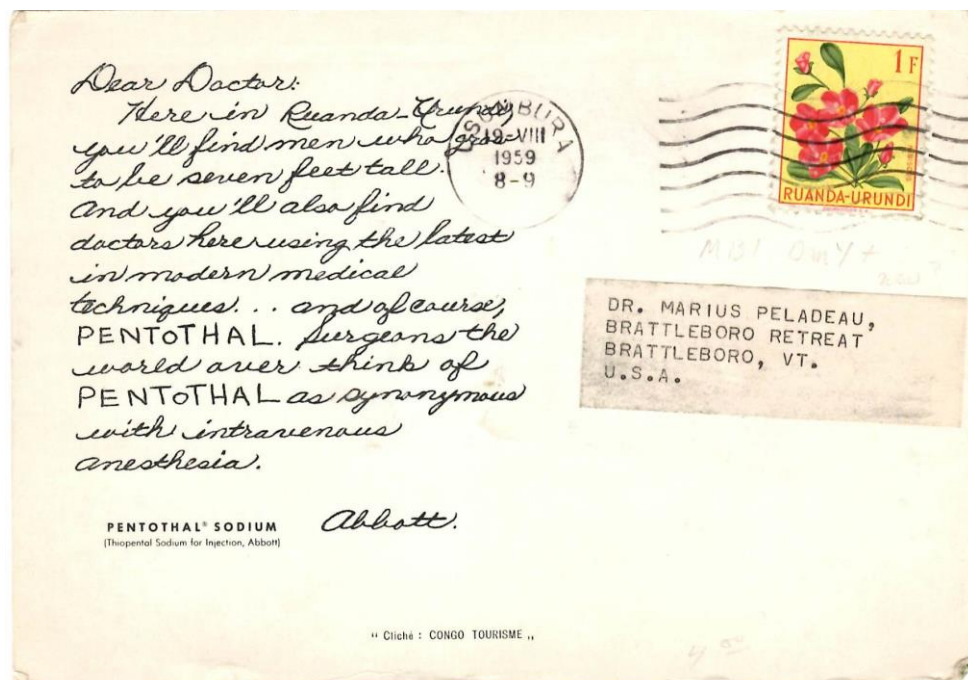 Dear Doctor:
Here in Ruanda-Urundi,
you'll find men who grow
to be seven feet tall.
And you'll also find
doctors here using the latest
in modern medical
techniques... and of course,
PENTOTHAL. Surgeons the
world over think of
PENTOTHAL as synonymous
with intravenous
anesthesia.
Abbott.
PENTOTHAL® SODIUM
(Thiopental Sodium for Injection, Abbott)
" Cliché : CONGO TOURISME „
USUMBURA
19-VIII
1959
8-9
1 F
RUANDA-URUNDI
DR. MARIUS PELADEAU,
BRATTLEBORO RETREAT
BRATTLEBORO, VT.
U.S.A.